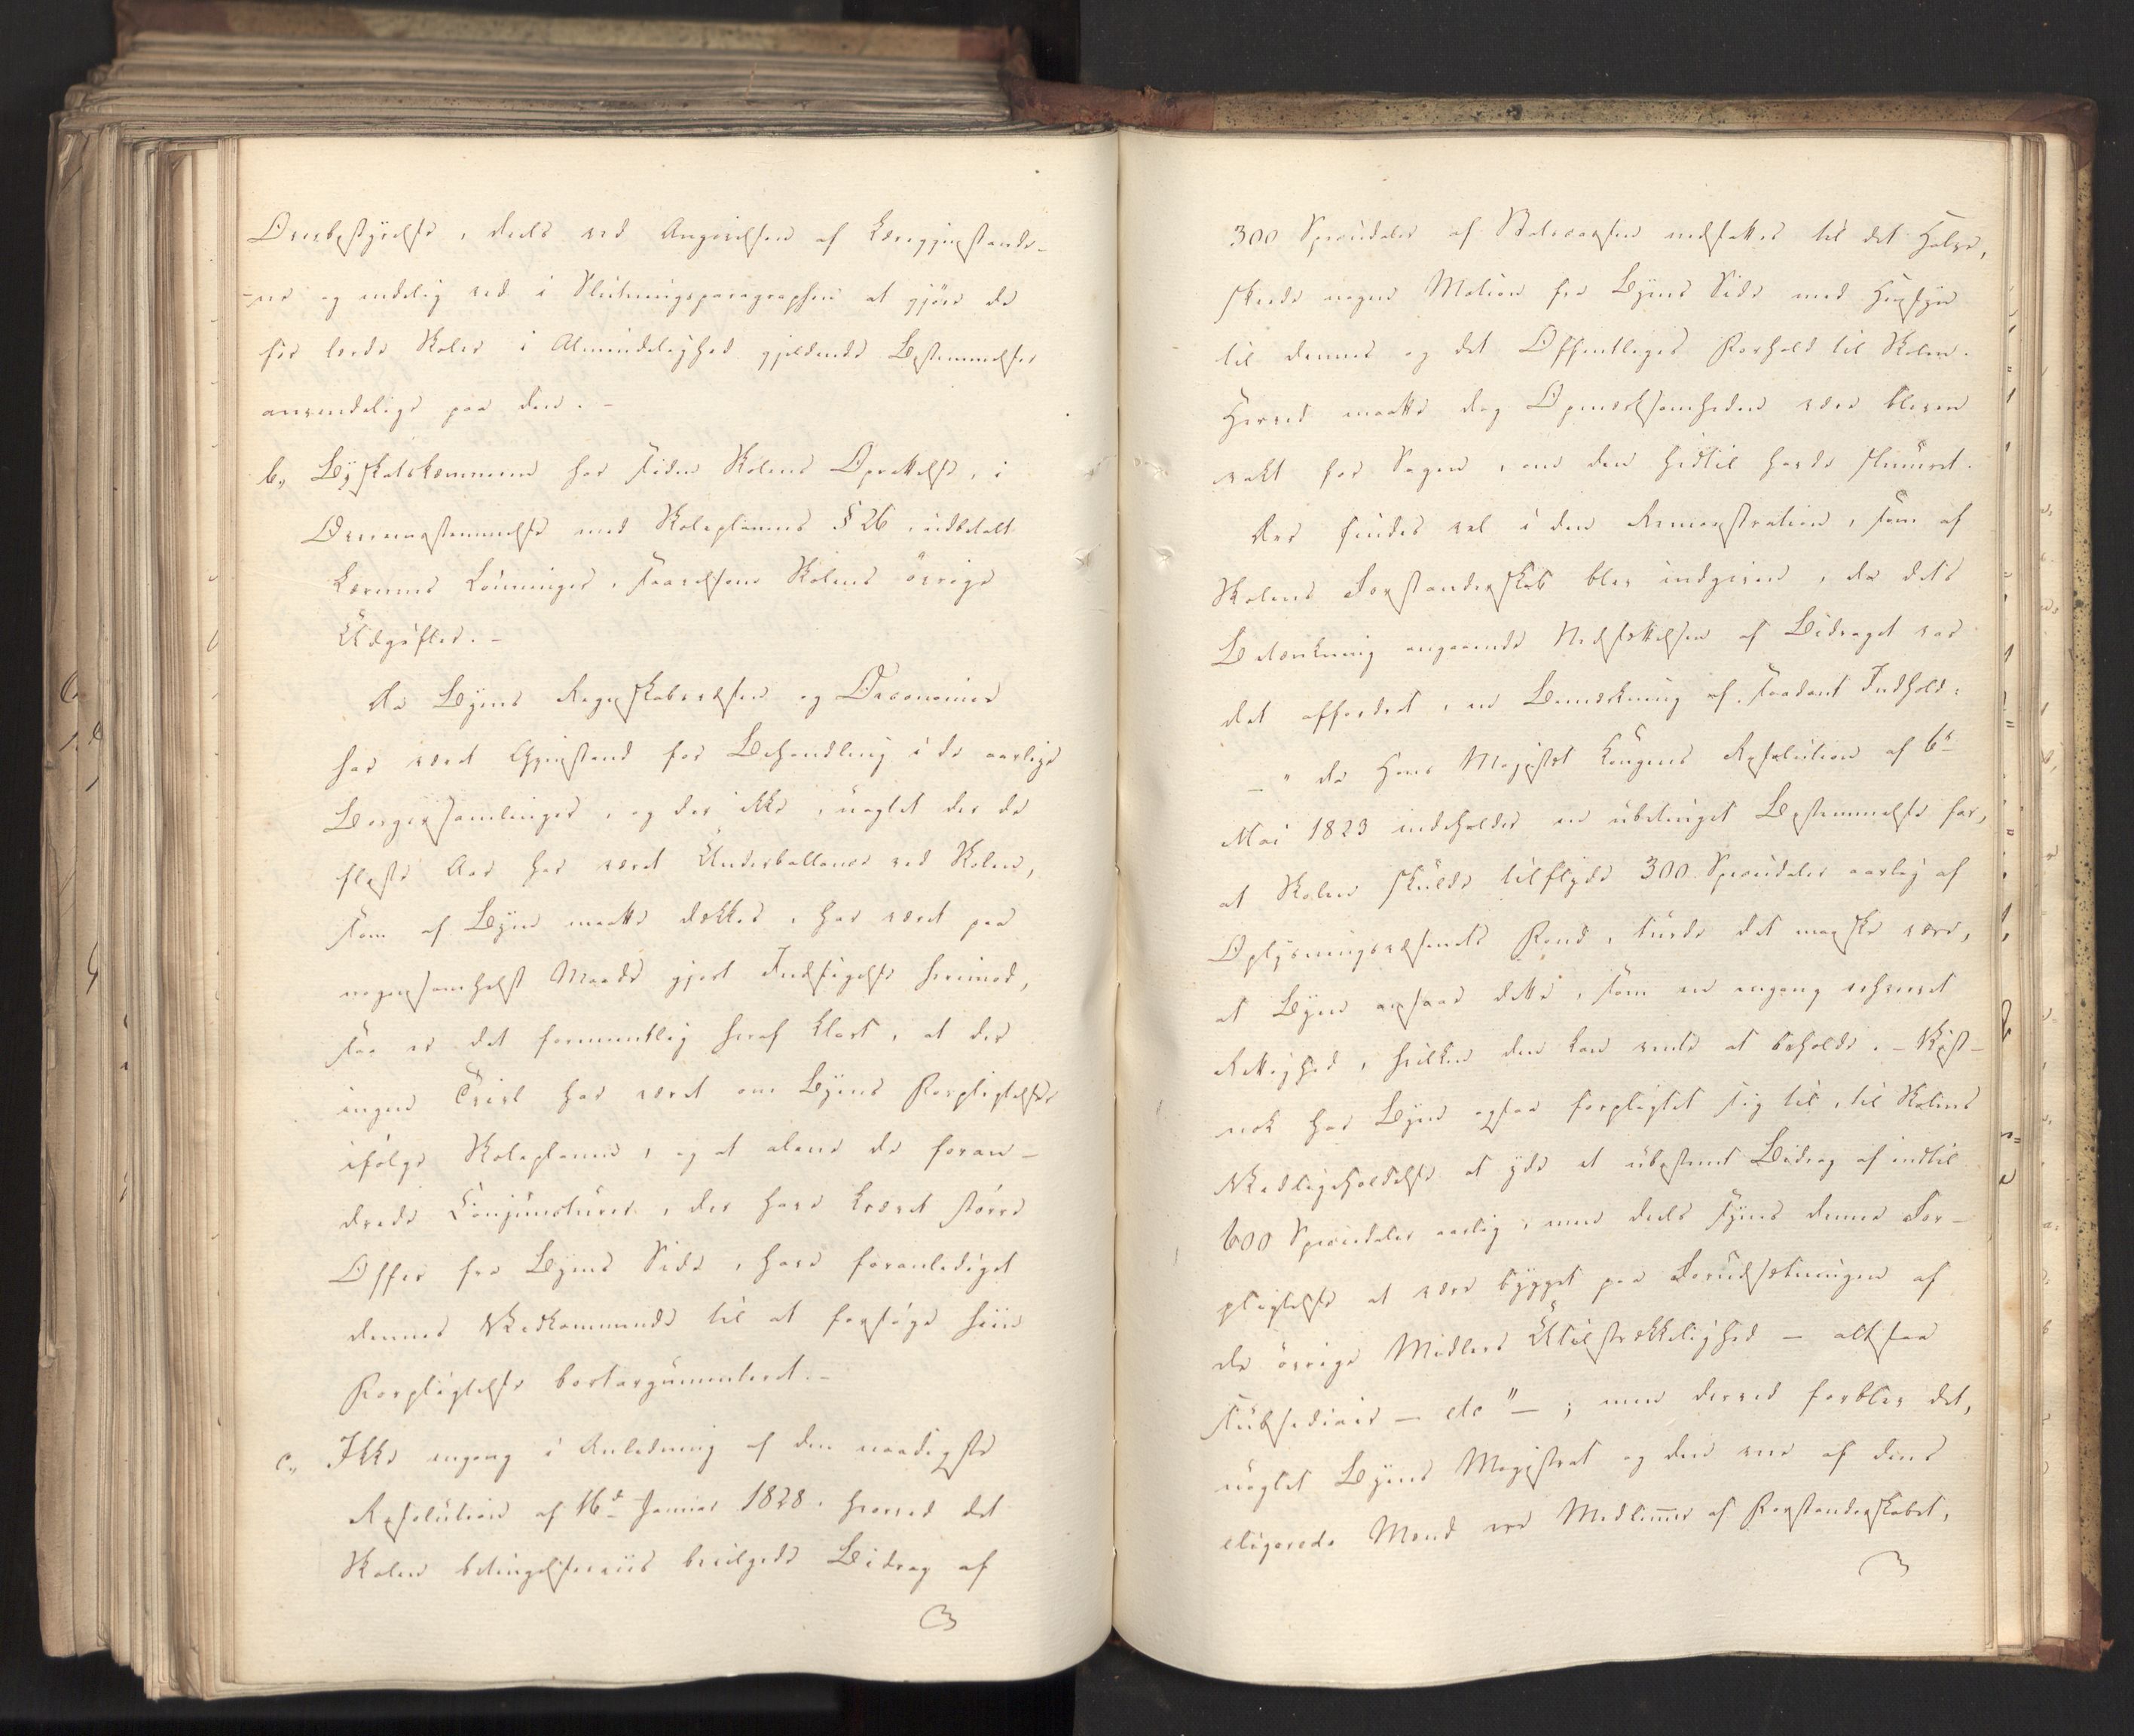 Overbestyrelse, deels ved Angivelsen af Læregjenstande-
-ne og endelig ved i Slutningsparagraphen at gjöre de
for lærde Skoler i Almindelighed gjeldende Bestemmelser
anvendelige paa den. -
b, Byskatskæmneren har siden Skolens Oprettelse, i
Overeensstemmelse med Skoleplanens § 26, udbetalt
Lærernes Lönninger, saavelsom Skolens övrige
Udgifter. -
Da Byens Regnskabsvæsen og Oeconomie
har været Gjenstand for Behandling i de aarlige
Borgersamlinger, og der ikke, uagtet der de
fleste Aar har været Underballance ved Skolen,
som af Byen maatte dækkes, har været paa
nogensomhelst Maade gjort Indsigelse herimod,
saa er det formeentlig heraf klart, at der
ingen Tvivl har været om Byens Forpligtelser
ifölge Skoleplanen, og at alene de foran-
drede Conjuncturer, der have krævet större
Offer fra Byens Side, have foranlediget
dennes Vedkommende til at forsöge hiin
Forpligtelse bortargumenteret. -
c, Ikke engang i Anledning af den naadigste
Resolution af 16d Januar 1828, hvorved det
Skolen betingelsesviis bevilgede Bidrag af
300 Speciedaler af Statscassen nedsattes til det Halve,
skeede nogen Motion fra Byens Side med Hensyn
til dennes og det Offentliges Forhold til Skolen.
Herved maatte dog Opmærksomheden være bleven
vakt for Sagen, om den hidtil havde slumret.
Der findes vel i den Remonstration, som af
Skolens Forstanderskab blev indgiven, da dets
Betænkning angaaende Nedsættelsen af Bidraget var
det affordret, en Bemærkning af saadant Indhold:
- " da Hans Majestæt Kongens Resolution af 6te
Mai 1823 indeholder en ubetinget Bestemmelse for,
at Skolen skulde tilflyde 300 Speciedaler aarlig af
Oplysningsvæsenets Fond, turde det maaskee være,
at Byen ansaae dette, som en engang erhvervet
Rettighed, hvilken den kan vente at beholde. - Vist-
nok har Byen ogsaa forpligtet sig til, til Skolens
Vedligeholdelse at yde et ubestemt Bidrag af indtil
600 Speciedaler aarlig, men deels synes denne For-
pligtelse at være bygget paa Forudsætningen af
de övrige Midlers Utilstrækkelighed - altsaa
subsidiair - etc" - ; men derved forblev det,
uagtet Byens Magistrat og den ene af dens
eligerede Mænd ere Medlemmer af Forstanderskabet,